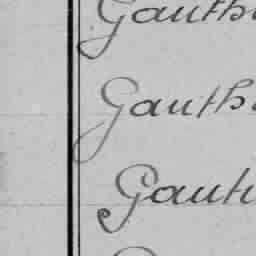 Gauth
Gauth
Gauth